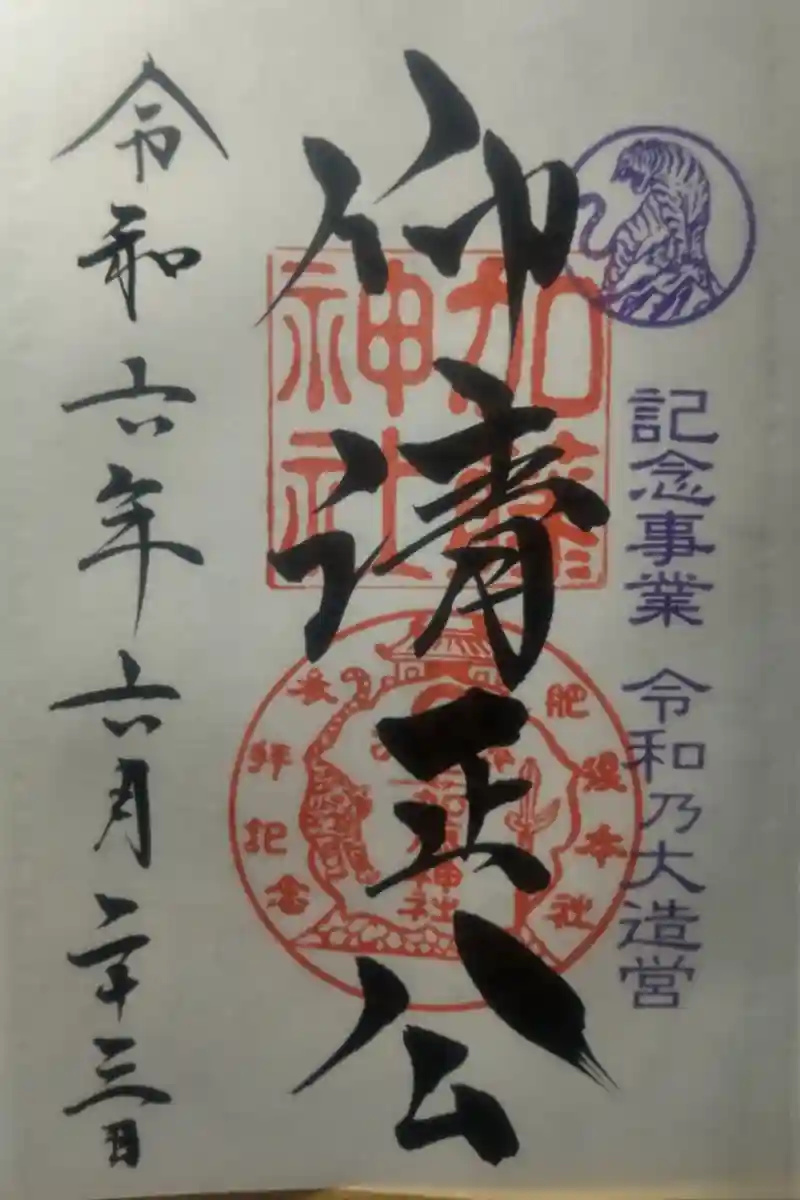 記念事業 令和乃大造営
仰清正公
加藤神社
肥後本社
参拝記念
令和六年六月二十三日